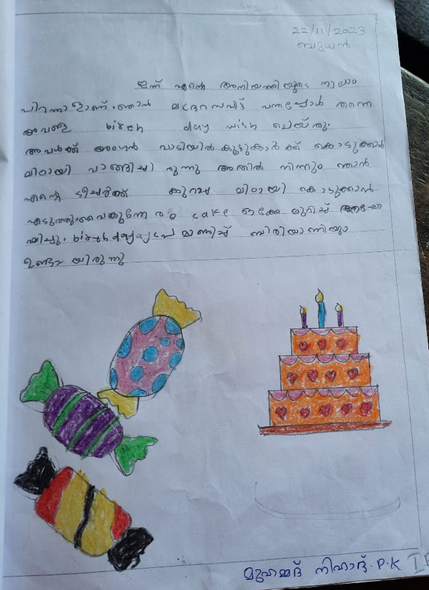 22/11/2023
ബുധൻ
ഇന്ന് എന്റെ അനിയത്തിയുടെ നാലാം
പിറന്നാളാണ്. ഞാൻ മദ്രസവിട്ട് വന്നപ്പോൾ തന്നെ
അവളെ birth day wish ചെയ്തു.
അവൾക്ക് അംഗൻ വാടിയിൽ കൂട്ടുകാർക്ക് കൊടുക്കാൻ
മിഠായി വാങ്ങിച്ചിരുന്നു അതിൽ നിന്നും ഞാൻ
എന്റെ ടീച്ചർക്ക് കുറച്ച് മിഠായി കൊടുക്കാൻ
എടുത്തു. വൈകുന്നേരം cake ഒക്കെ മുറിച്ച്
birthday പ്രമാണിച്ച് ബിരിയാണിയും
ഉണ്ടായിരുന്നു
മുഹമ്മദ് നിഹാദ്. P. K